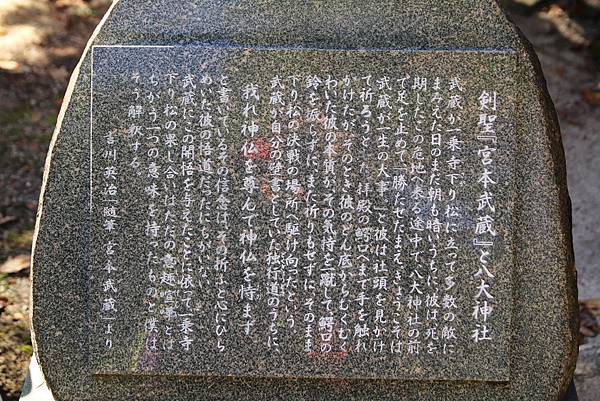 剣聖『宮本武蔵』と八大神社
武蔵が一乗寺下り松に立って多数の敵に
まみえた日のまだ朝も暗いうちに、彼は死を
期したこの危地へ来る途中で八大神社の前
で足を止めて「勝たせたまえ。きょうこそは
武蔵が一生の大事。」と彼は社頭を見かけ
て祈ろうとした。拝殿の鰐口へまで手を触れ
かけたが、そのとき彼のどん底からむくむく
わいた彼の本質が、その気持を一蹴して鰐口の
鈴を振らずに、また祈りもせずに、そのまま
下り松の決戦の場所へ駆け向ったという。
武蔵が自分の壁書としていた独行道のうちに、
我れ神仏を尊んで神仏を恃まず
と書いているその信念は、その折ふと心にひら
めいた彼の悟道だったにちがいない。
武蔵にこの開悟を与えたことに依って一乗寺
下り松の果し合いはただの意趣喧嘩とは
ちがう一つの意味を持ったものと僕は
そう解釈する。
吉川英治「随筆 宮本武蔵」より